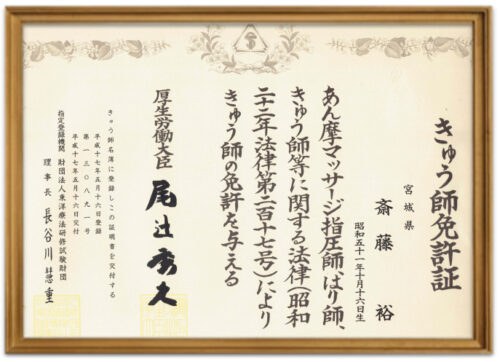 きゅう師免許証
宮城県
斎藤 裕
昭和五十一年十月十六日生
あん摩マッサージ指圧師、はり師、
きゅう師等に関する法律(昭和
二十二年法律第二百十七号)により
きゅう師の免許を与える
厚生労働大臣 尾辻秀久
きゅう師名簿に登録しこの証明書を交付する
平成十七年五月十六日登録
第一三〇八九一号
平成十七年五月十六日交付
指定登録機関 財団法人東洋療法研修試験財団
理事長 長谷川慧重